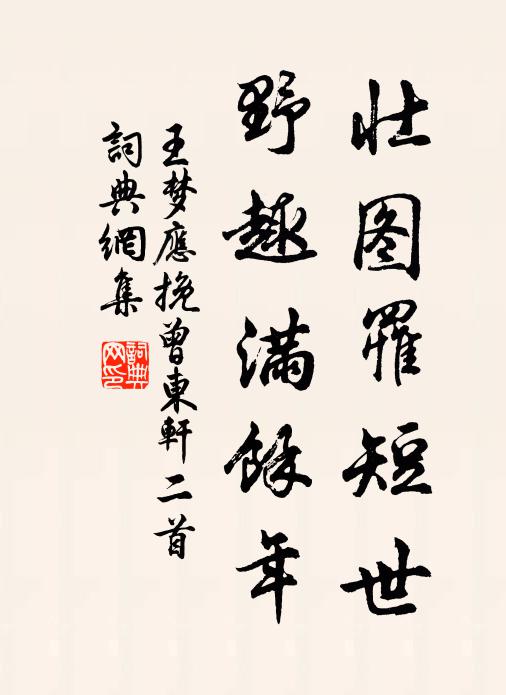 壮图罹短世
野趣满馀年
王梦應挽曾東軒二首
詞典網集
詞典网印